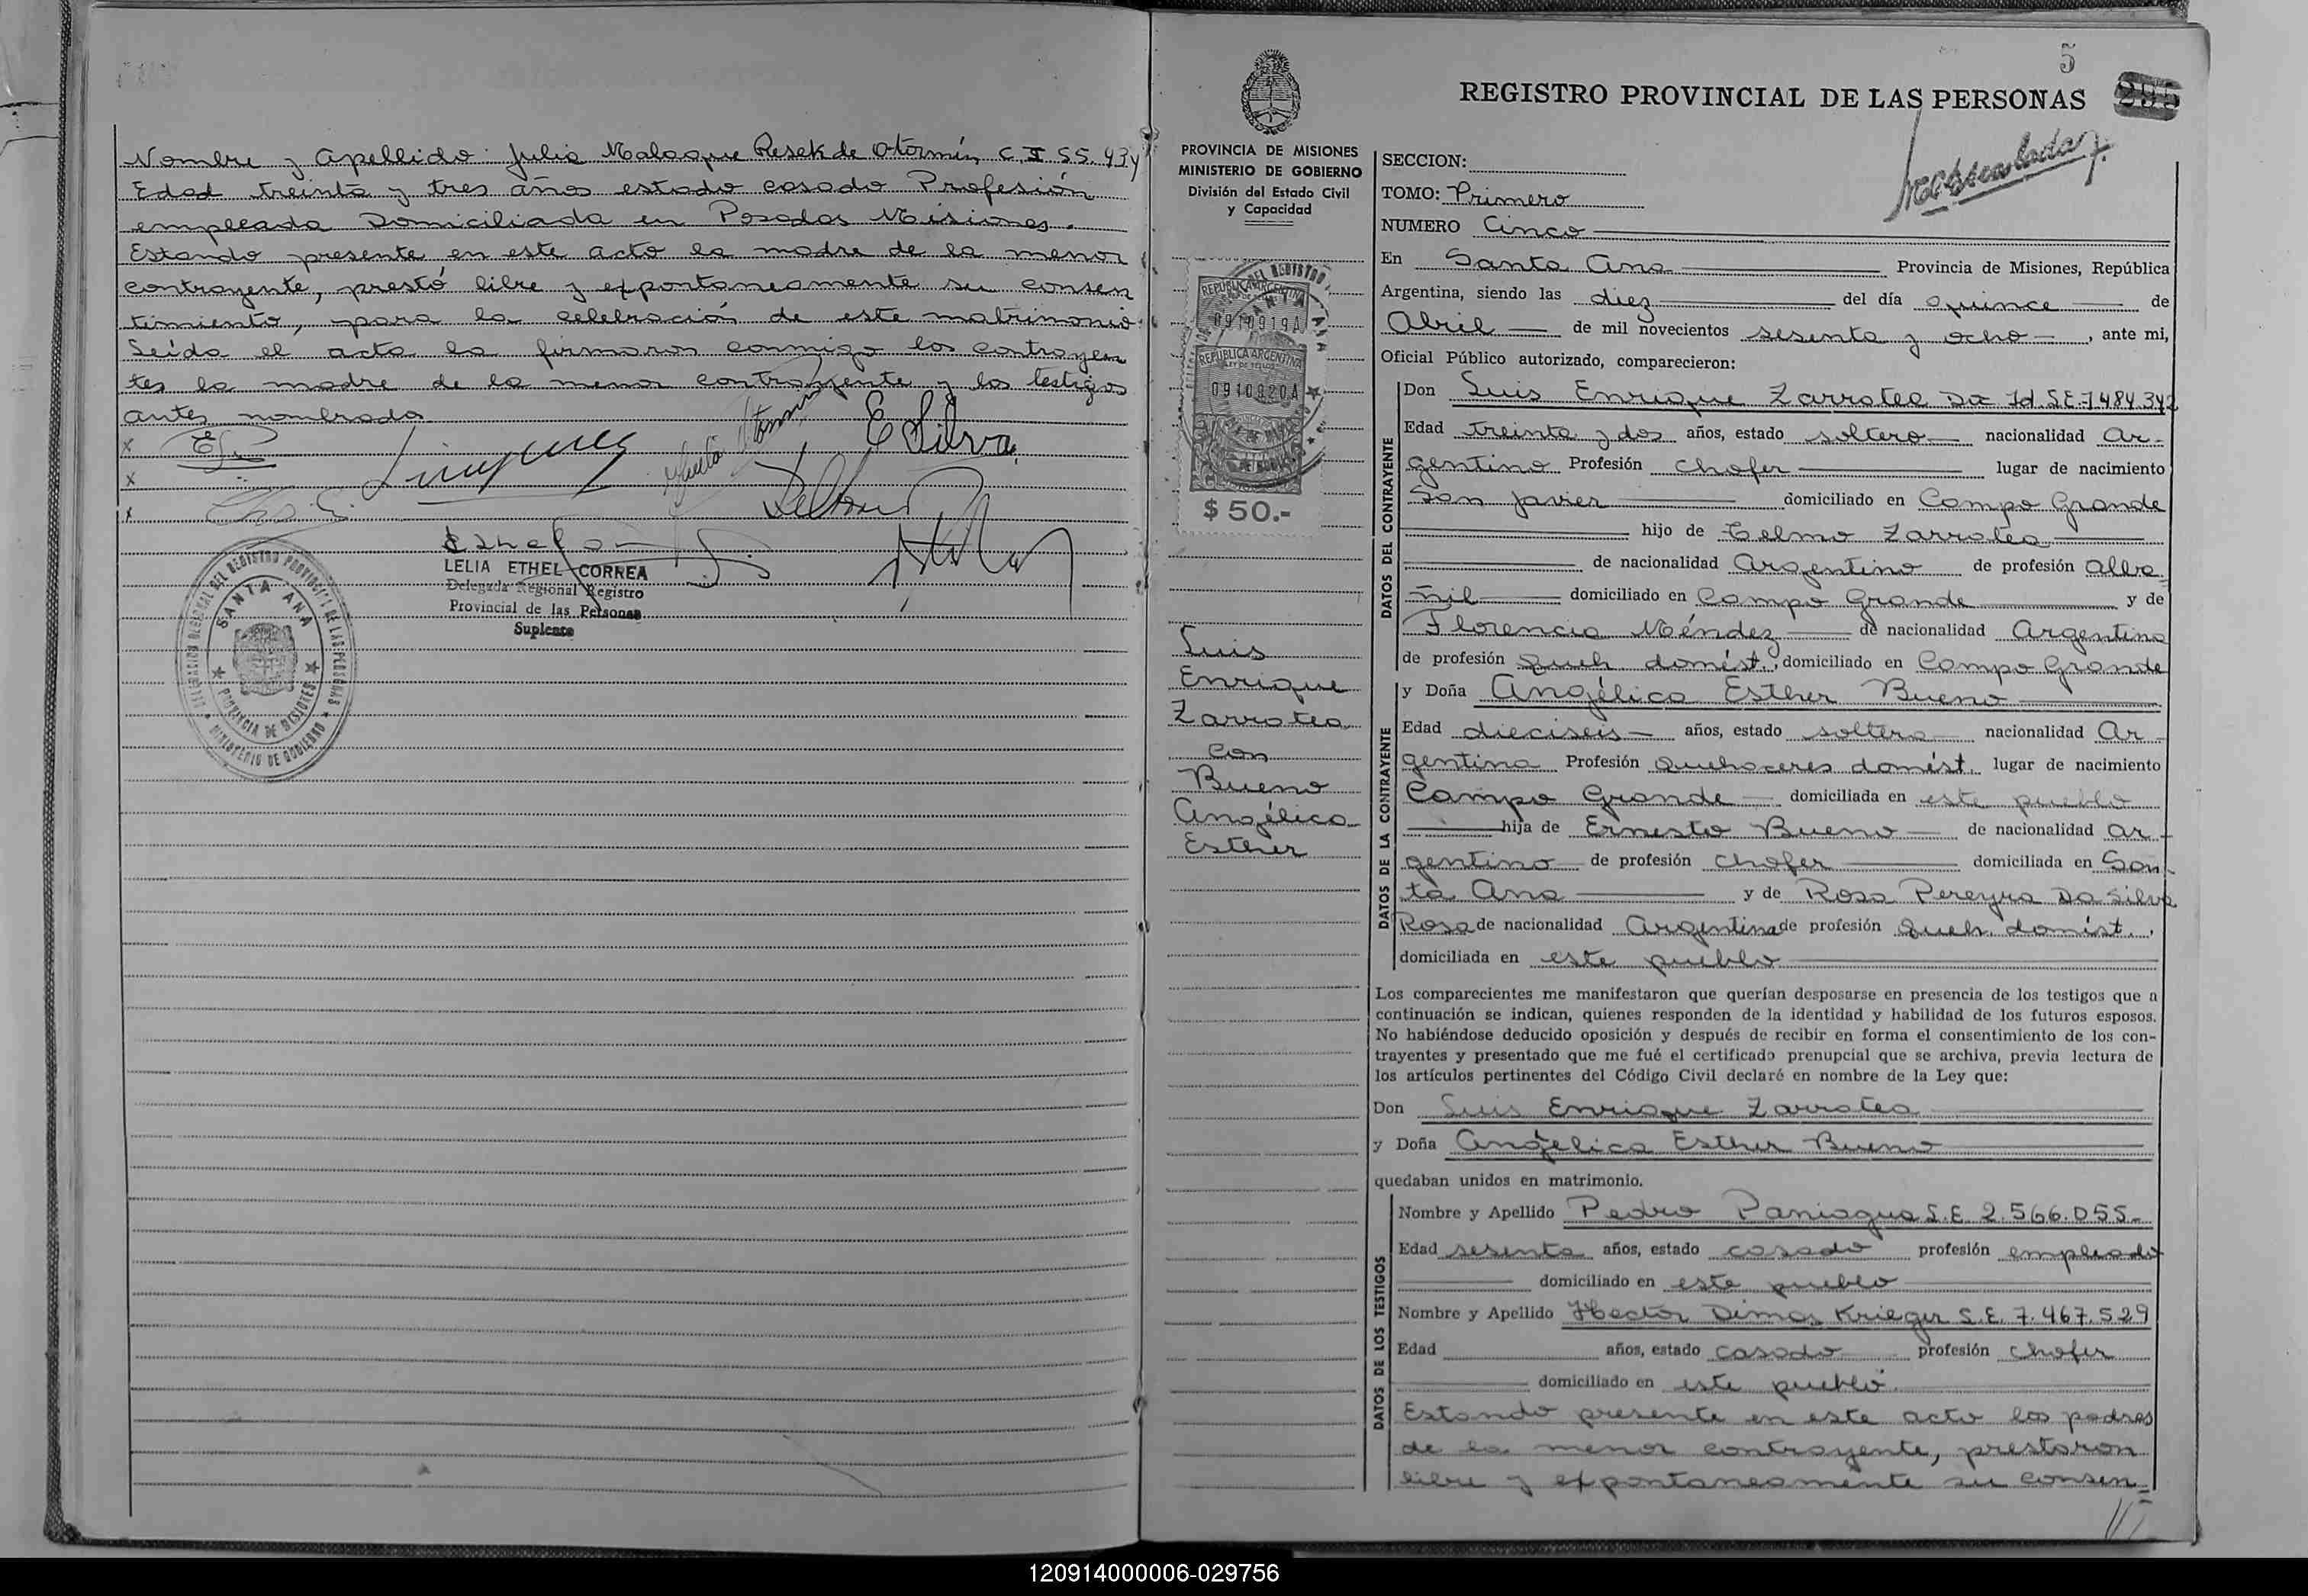 Nombre y apellido: Julia Malaque Resek de Otormín C.I 55.434
Edad treinta y tres años estado casado Profesión
empleada Domiciliada en Posadas Misiones.
Estando presente en este acto la madre de la menor
contrayente, prestó libre y expontaneamente su consen
timiento, para la celebración de este matrimonio.
Leída el acta la firmaron conmigo los contrayen
tes la madre de la menor contrayente y los testigos
antes nombrados
E Silva
LELIA ETHEL CORREA
Delegada Regional Registro
Provincial de las Personas
Suplente
DELEGACION REGIONAL DEL REGISTRO PROVINCIAL DE LAS PERSONAS
SANTA ANA
PROVINCIA DE MISIONES
MINISTERIO DE GOBIERNO
5
REGISTRO PROVINCIAL DE LAS PERSONAS
PROVINCIA DE MISIONES
MINISTERIO DE GOBIERNO
División del Estado Civil
y Capacidad
REPUBLICA ARGENTINA
0910919A
REPUBLICA ARGENTINA
0910920A
$ 50.-
Luis
Enrique
Zarratea
con
Bueno
Angélica
Esther
SECCION:
TOMO: Primero
NUMERO Cinco
En Santa Ana Provincia de Misiones, República
Argentina, siendo las diez del día quince de
Abril de mil novecientos sesenta y ocho, ante mi,
Oficial Público autorizado, comparecieron:
DATOS DEL CONTRAYENTE
Don Luis Enrique Zarratea Doc Id. S.E. 7.484.342
Edad treinta y dos años, estado soltero nacionalidad Ar-
gentino Profesión Chofer lugar de nacimiento
San Javier domiciliado en Campo Grande
hijo de Celmo Zarratea
de nacionalidad Argentino de profesión alba
ñil domiciliado en Campo Grande y de
Florencia Méndez de nacionalidad Argentina
de profesión Queh. domést., domiciliado en Campo Grande
DATOS DE LA CONTRAYENTE
y Doña Angélica Esther Bueno
Edad dieciseis años, estado soltera nacionalidad Ar-
gentina Profesión Quehaceres domést. lugar de nacimiento
Campo Grande domiciliada en este pueblo
hija de Ernesto Bueno de nacionalidad Ar-
gentino de profesión Chofer domiciliada en San-
ta Ana y de Rosa Pereyra Da Silva
Rosa de nacionalidad Argentina de profesión Queh. domést.,
domiciliada en este pueblo
Los comparecientes me manifestaron que querían desposarse en presencia de los testigos que a
continuación se indican, quienes responden de la identidad y habilidad de los futuros esposos.
No habiéndose deducido oposición y después de recibir en forma el consentimiento de los con-
trayentes y presentado que me fué el certificado prenupcial que se archiva, previa lectura de
los artículos pertinentes del Código Civil declaré en nombre de la Ley que:
Don Luis Enrique Zarratea
y Doña Angélica Esther Bueno
quedaban unidos en matrimonio.
DATOS DE LOS TESTIGOS
Nombre y Apellido Pedro Paniagua S.E. 2.566.055-
Edad sesenta años, estado casado profesión empleado
domiciliado en este pueblo
Nombre y Apellido Hector Dimas Krieger S.E. 7.467.529
Edad años, estado casado profesión chofer
domiciliado en este pueblo.
Estando presente en este acto los padres
de la menor contrayente, prestaron
libre y expontaneamente su consen-
120914000006-029756